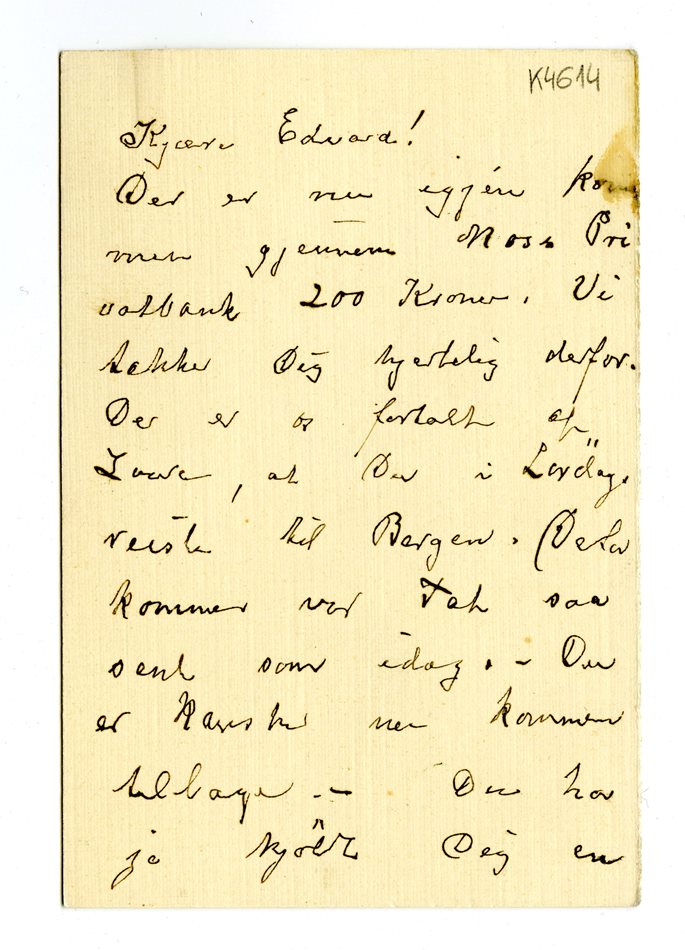 K4614
Kjære Edvard!
Der er nu igjén kom
men gjennem Moss Pri
vatbank 200 Kroner. Vi
takker Dig hjertelig derfor.
Der er os fortalt af
Laura, at Du i Lördag.
reiste til Bergen. Dette
kommer vor Tak saa
sent som idag. – Du
er kanske nu kommen
tilbage. – Du har
ja kjöbt Dig en